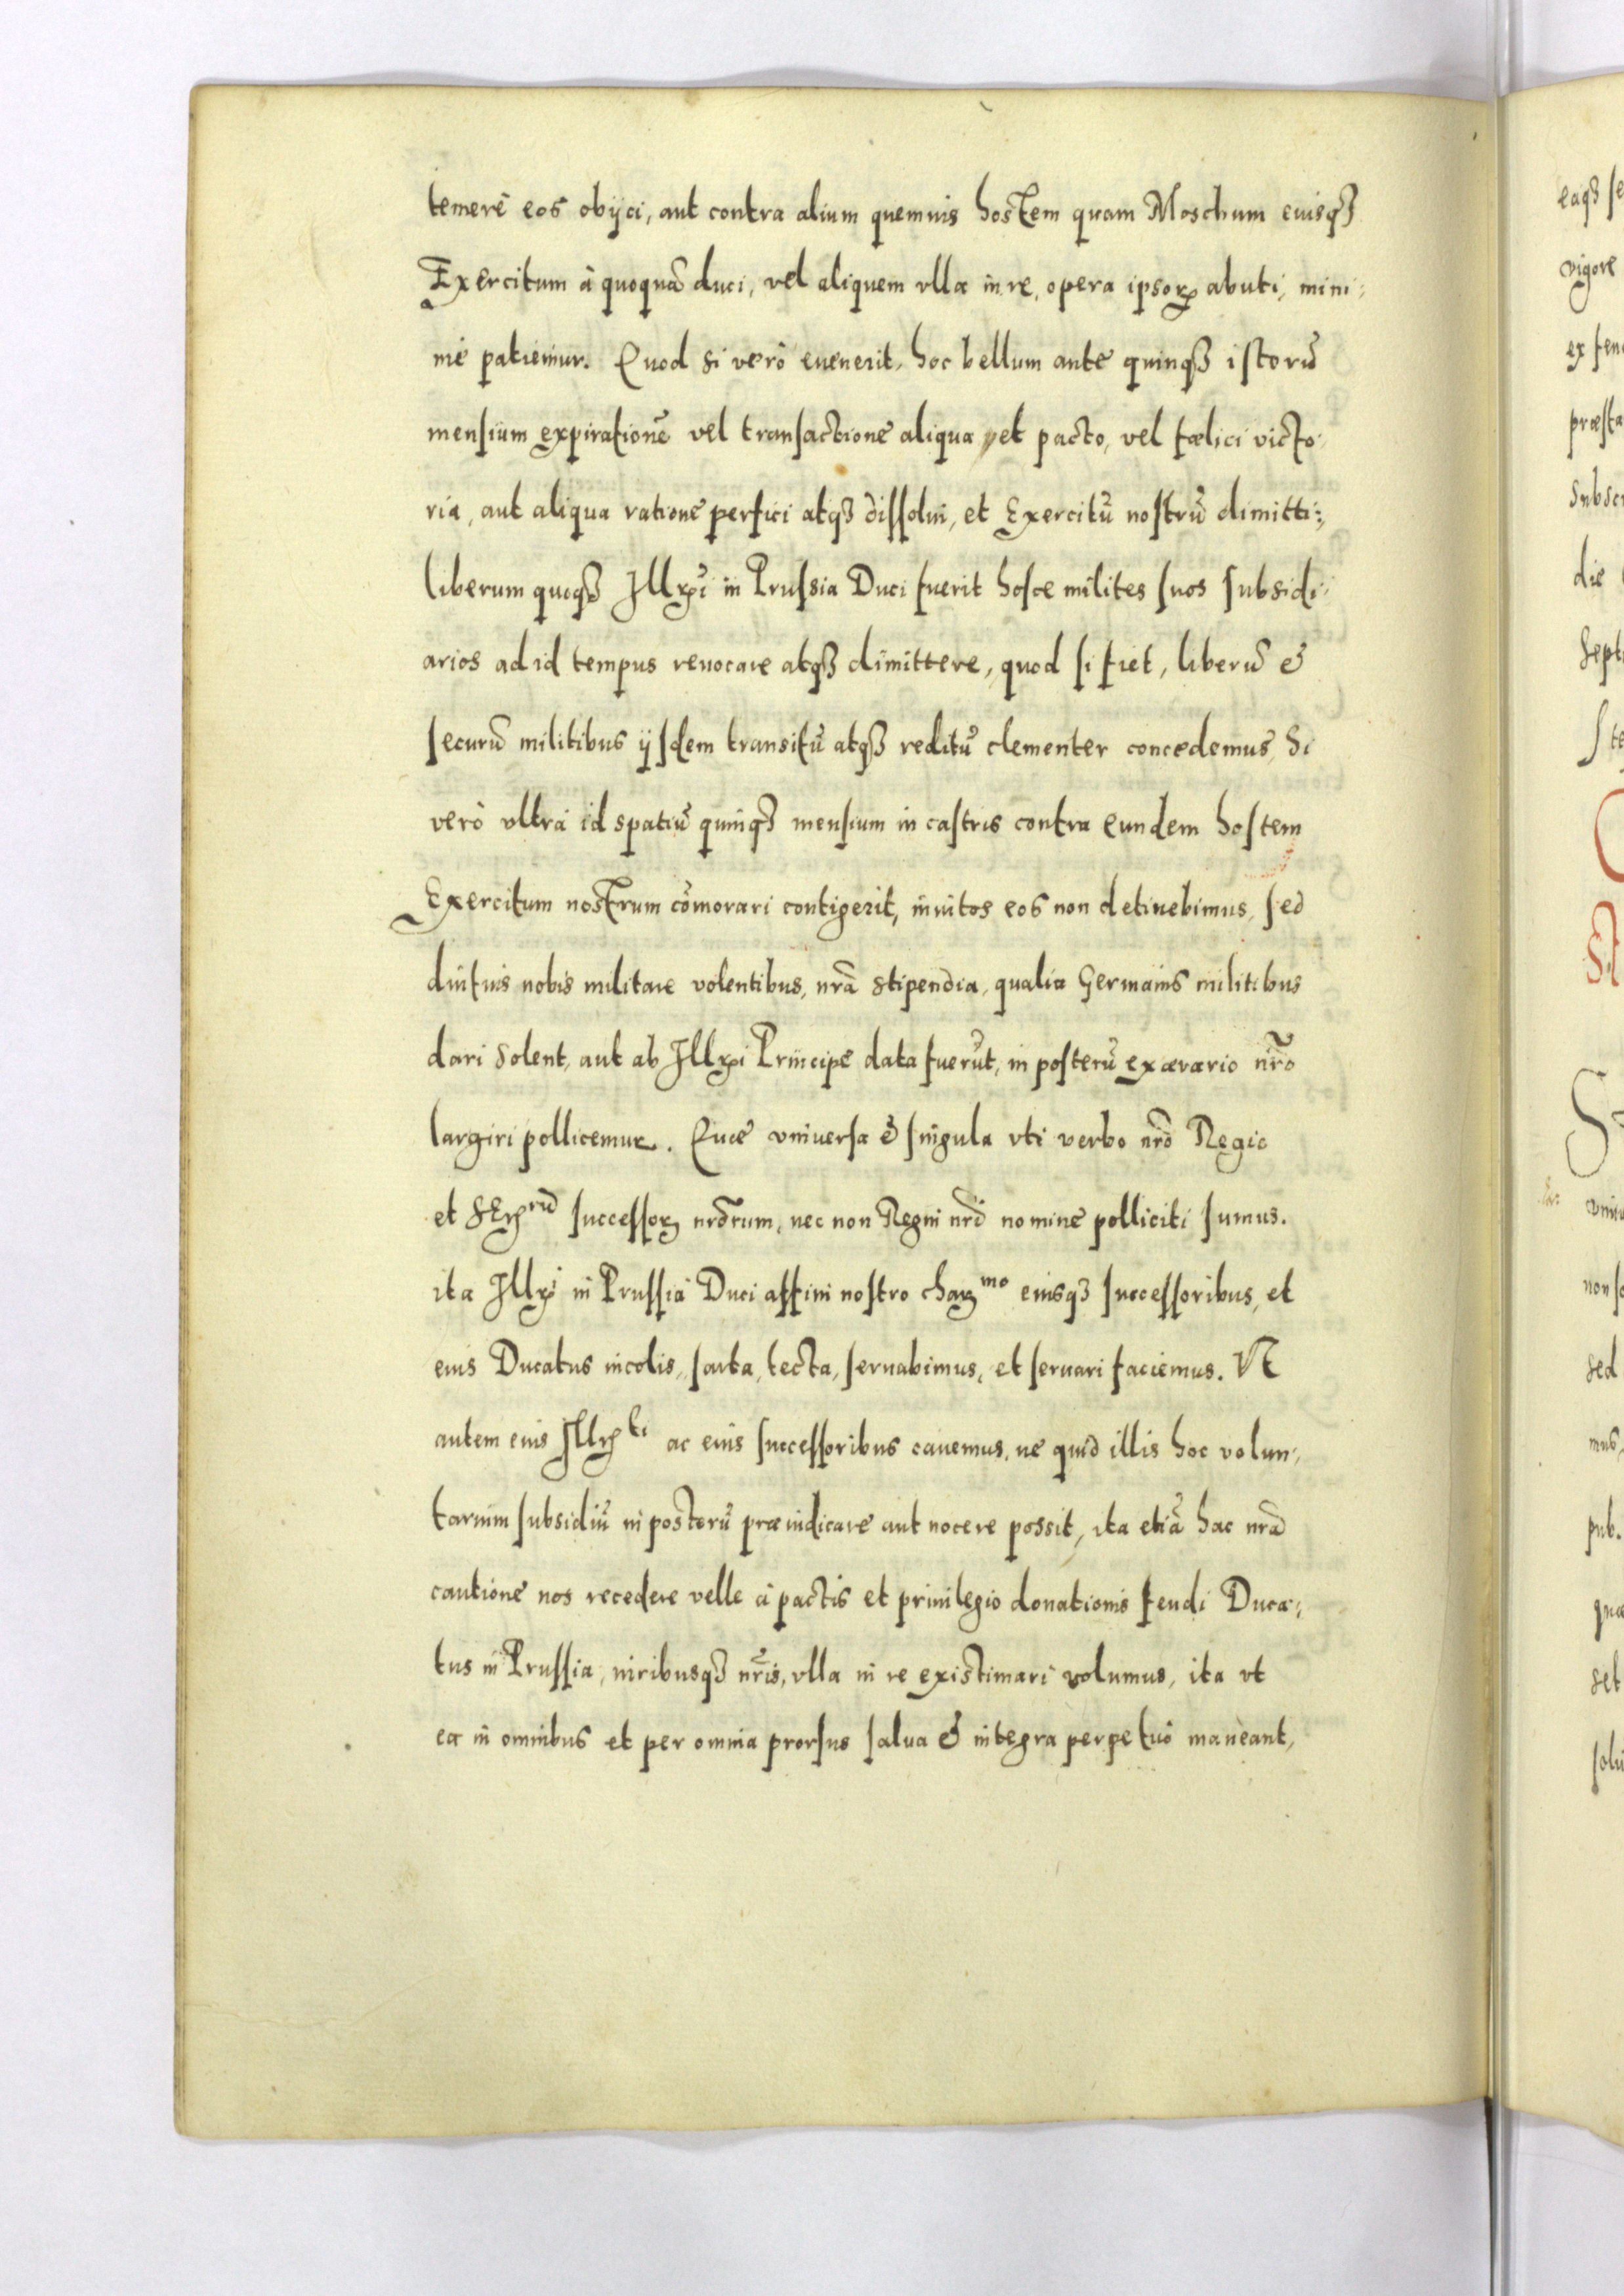 temerè eos obÿci, aut contra alium quemuis hostem quam Moschum eiusq₃
Exercitum à quoquā duci, vel aliquem vlla in re, opera ipsoꝝ abuti, mini:
mè patiemur. Quod si verò euenerit, hoc bellum ante quinq₃ istorū
mensium expirationē vel transactione aliqua, et pacto, vel fœlici victo:
ria, aut aliqua ratione perfici atq₃ dissolui, et Exercitū nostrū dimitti:,
liberum quoq₃ Illꝝi in Prussia Duci fuerit hosce milites suos subsidi:
arios ad id tempus reuocare atq₃ dimittere, quod si fiet, liberū &
securū militibus ÿsdem transitū atq₃ reditū clementer concedemus, Si
verò vltrà id spatiū quinq₃ mensium in castris contra eundem hostem
Exercitum nostrum cōmorari contigerit, inuitos eos non detinebimus, sed
diutius nobis militare volentibus, nrā stipendia, qualia Germanis militibus
dari solent, aut ab Illꝝi Principe data fuerūt, in posterū ex ærario nr̃o
largiri pollicemur. Quæ vniuersa & singula vti verbo nrō Regio
et Serꝝrū successoꝝ nrōrum, nec non Regni nrī nomine polliciti sumus.
ita Illꝝi in Prussia Duci affini nostro chaꝝmo eiusq₃ successoribus, et
eius Ducatus incolis, sarta, tecta, seruabimus, et seruari faciemus. Vt
autem eius Illꝝti ac eius successoribus cauemus, ne quid illis hoc volun:
tarium subsidiū in posterū præiudicare aut nocere possit, ita etiā hac nrā
cautione nos recedere velle à pactis et priuilegio donationis feudi Duca:
tus in Prussia, iuribusq₃ nr̃is, vlla in re existimari volumus, ita vt
ea in omnibus et per omnia prorsus salua & integra perpetuò maneant,